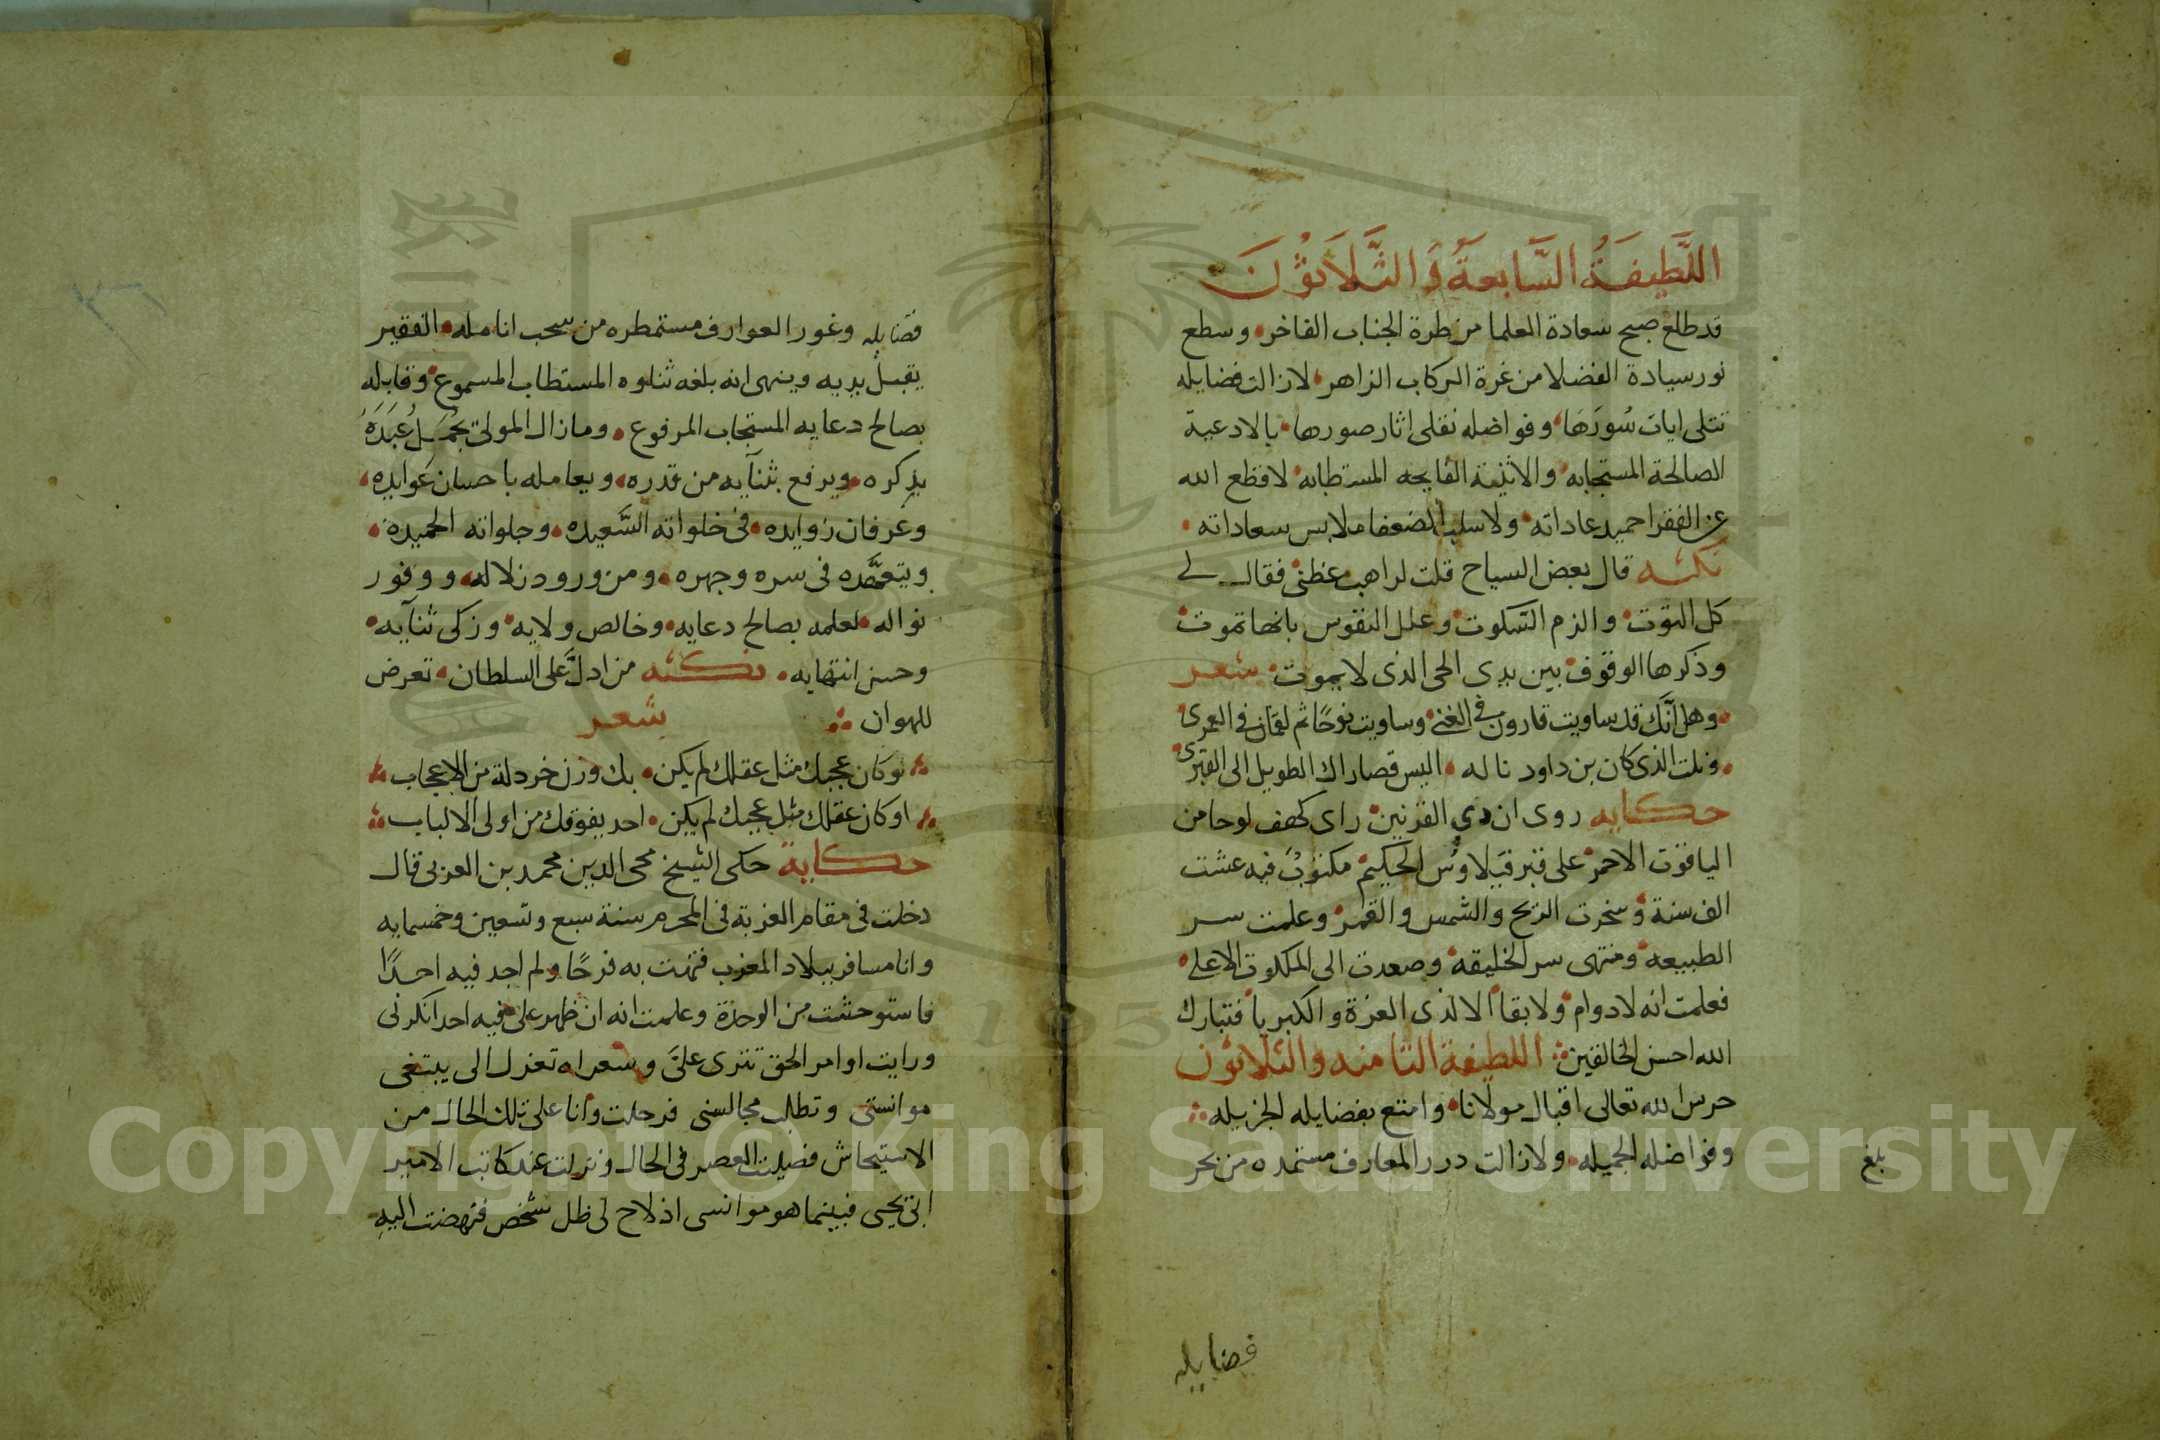 اللَّطِيفَةُ السَّابِعَةُ وَالثَّلَاثُونَ
قد طلع صبح سعادة العلما من طرة الجناب الفاخر وسطع
نور سيادة الفضلا من غرة الركاب الزاهر لازالت فضايله
تتلى ايات سُورَهَا وفواضله تملى اثار صورها بالادعية
الصالحة المستجابه والاثنية الفايحه المستطابه لا قطع الله
عن الفقرا حميد عاداته ولا سلب الضعفا ملابس سعاداته
نكته قال بعض السياح قلت لراهب عظنى فقال لى
كل القوت والزم السكوت وعلل النفوس بانها تموت
وذكرها الوقوف بين يدى الحى الذى لا يموت شعر
وهل انّك قد ساويت قارون فى الغنى وساويت نوحًا ثم لقمان فى العمرى
ونلت الذى كان بن داود ناله اليس قصاراك الطويل الى القبرى
حكايه روى ان ذي القرنين راى كهف لوحا من
الياقوت الاحمر على قبر قيلاوس الحكيم مكتوبٌ فيه عشت
الف سنة وسخرت الريح والشمس والقمر وعلمت سر
الطبيعه ومنتهى سر الخليقه وصعدت الى الملكوت الاعلى
فعلمت انه لا دوام ولا بقا الا لذى العزة والكبريا فتبارك
الله احسن الخالقين اللطيفة الثامنه والثلاثون
حرس الله تعالى اقبال مولانا وامتع بفضايله الجزيله
وفواضله الجميله ولازالت درر المعارف مستمده من بحر
بلغ
فضايله
فضايله وغور العوارف مستمطره من سحب انامله الفقير
يقبل يديه وينهى انه بلغه ثناوه المستطاب المسموع وقابله
بصالح دعايه المستجاب المرفوع وما زال المولى يجمّل عبده
بذكره ويرفع بثنآيه من قدره ويعامله باحسان عوايده
وعرفان زوايده فى خلواته السَّعيده وجلواته الحميده
ويتعمَّده فى سره وجهره ومن ورود زلاله ووفور
نواله لعلمه بصالح دعايه وخالص ولايه وزكى ثنآيه
وحسن انتهايه نكته من ادلّ على السلطان تعرض
للهوان شعر
لو كان عجبك مثل عقلك لم يكن بك وزن خردلة من الاعجاب
او كان عقلك مثل عجبك لم يكن احد يفوقك من اولى الالباب
حكاية حكى الشيخ محى الدين محمد بن العربى قال
دخلت فى مقام الغربة فى المحرم سنة سبع وتسعين وخمسمايه
وانا مسافر ببلاد المغرب فتهت به فرحًا ولم اجد فيه احدًا
فاستوحشت من الوحدة وعلمت انه ان ظهر علىّ فيه احد انكرنى
ورايت اوامر الحق تترى علىَّ وسفراه تنزل الى يبتغى
موانستى وتطلب مجالستى فرحلت وانا على تلك الحال من
الاستيحاش فصليت العصر فى الحال ونزلت عند كاتب الامير
ابى يحيى فبينما هو موانسى اذ لاح لى ظل شخص فنهضت اليه